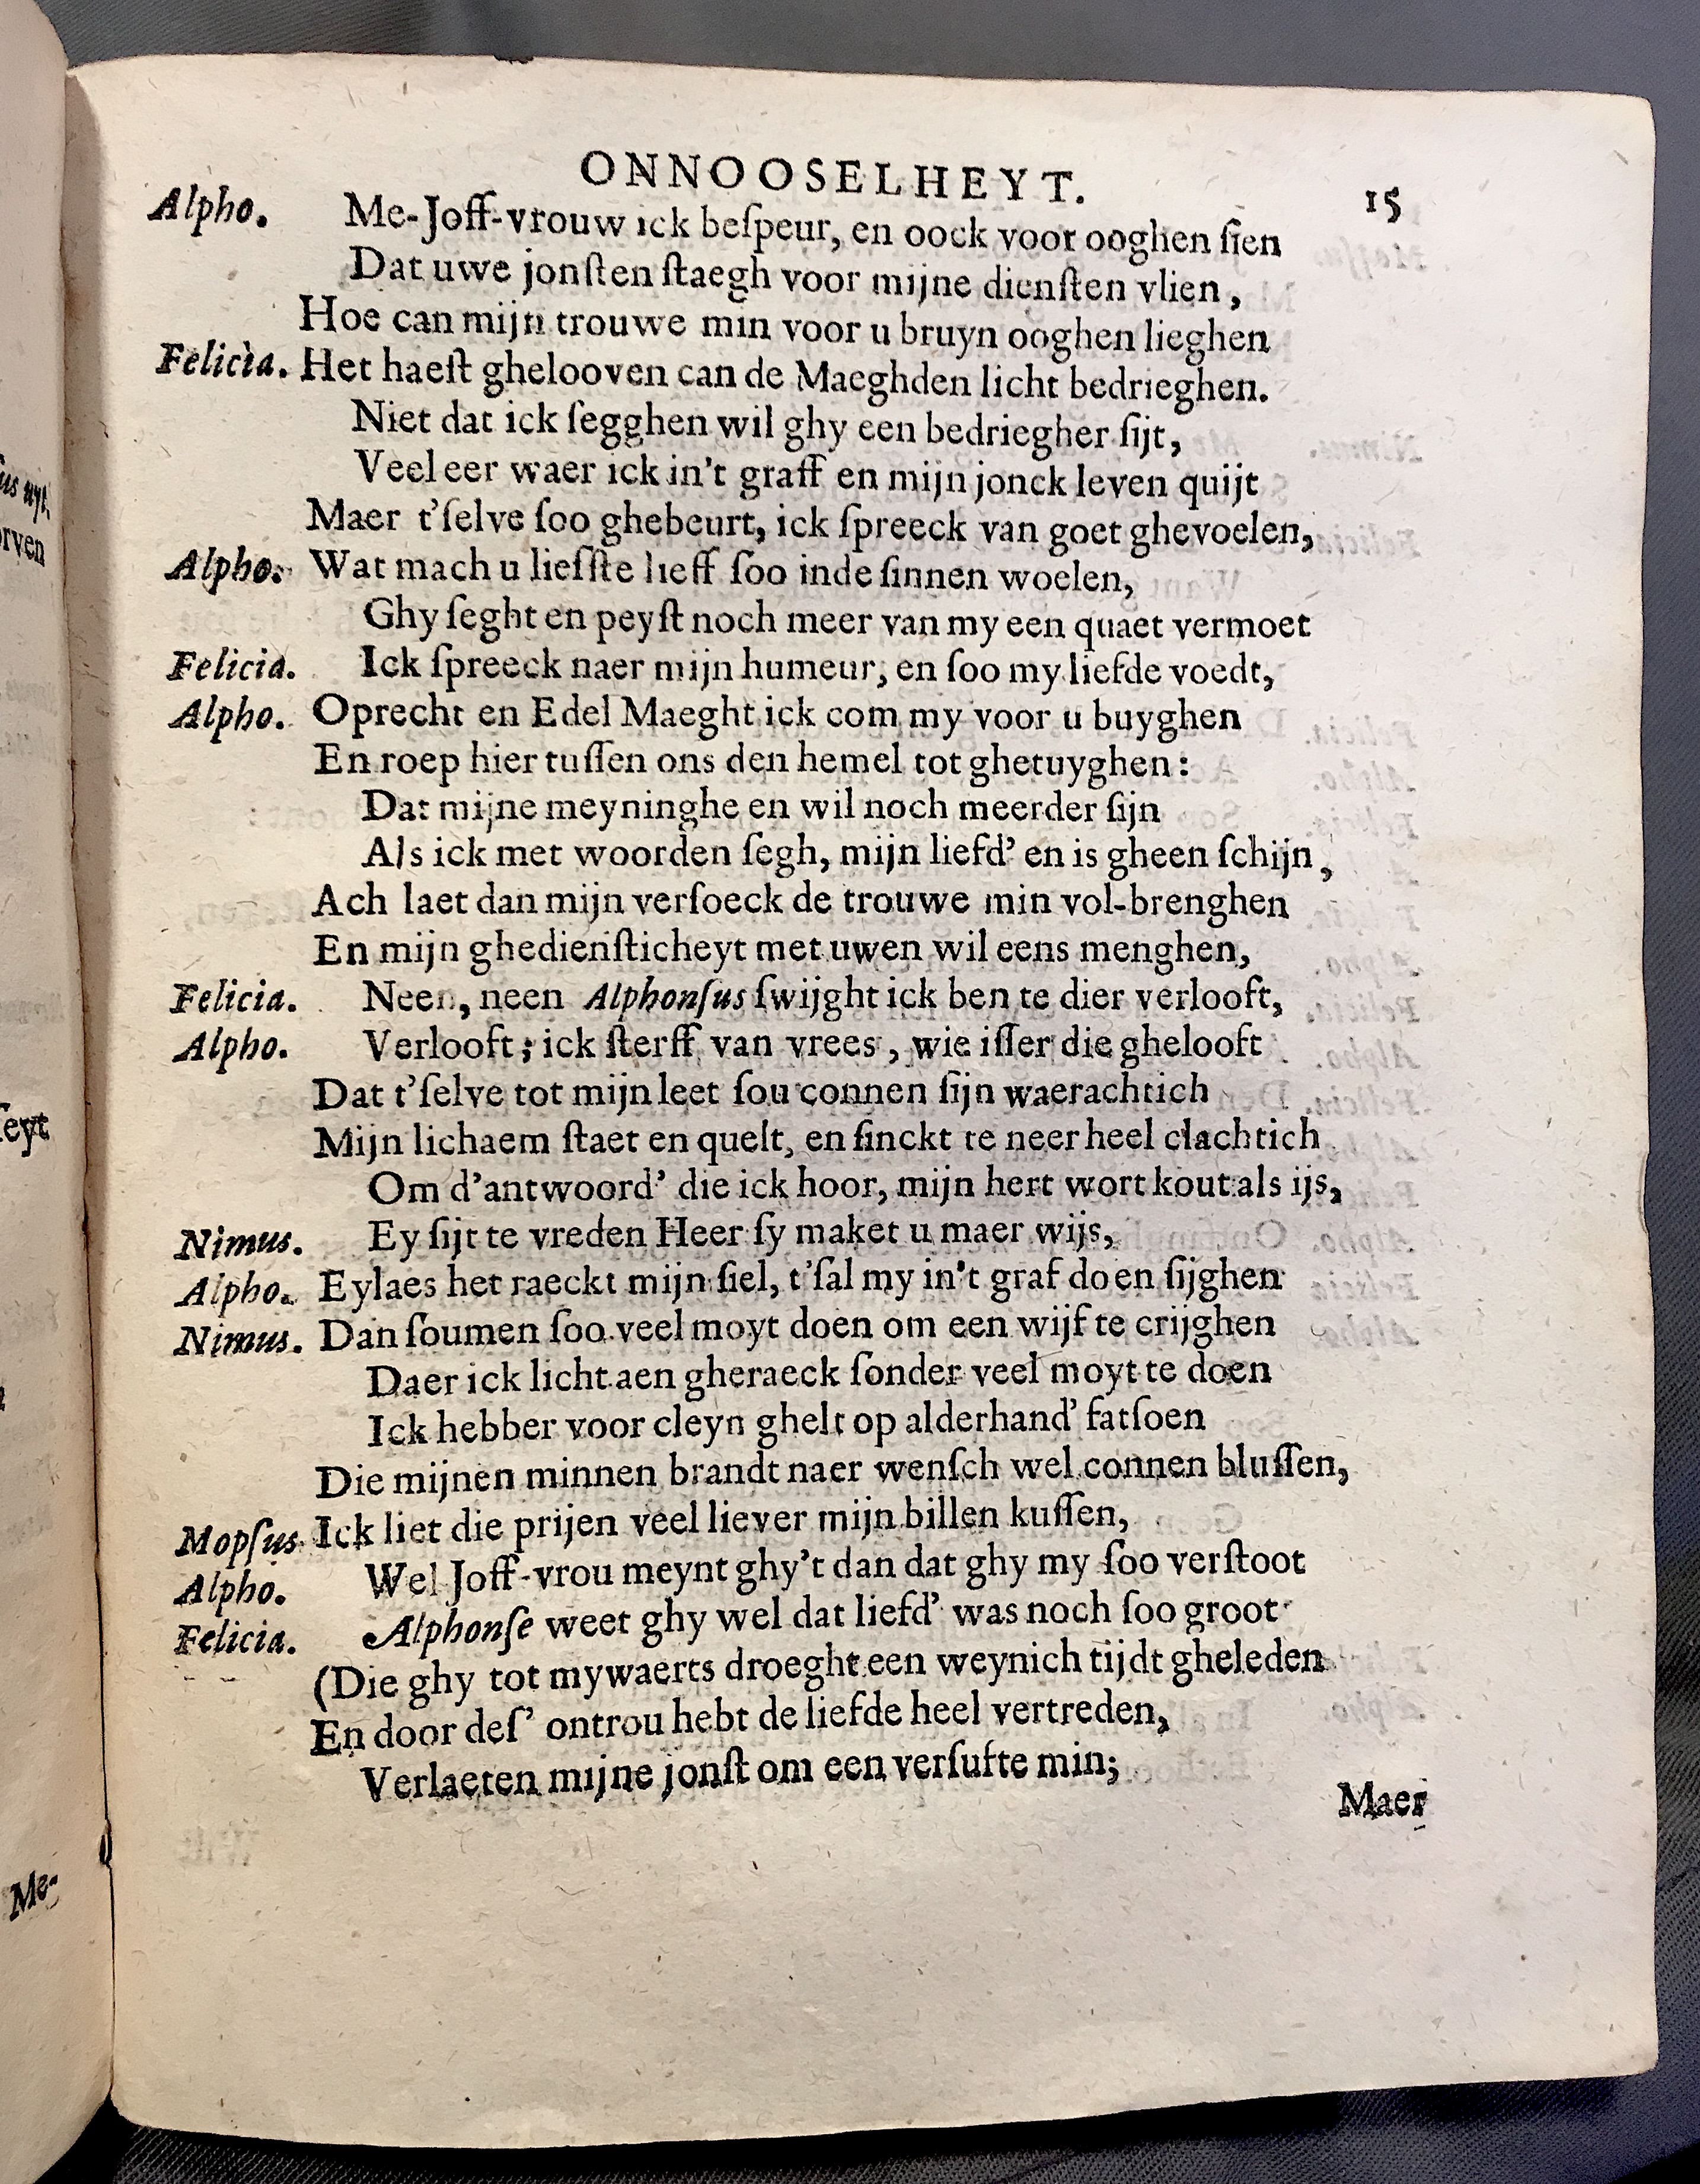 ONNOOSELHEYT. 15
Alpho. Me-Joff-vrouw ick beſpeur, en oock voor ooghen ſien
Dat uwe jonſten ſtaegh voor mijne dienſten vlien,
Hoe can mijn trouwe min voor u bruyn ooghen lieghen
Felicia. Het haeſt ghelooven can de Maeghden licht bedrieghen.
Niet dat ick ſegghen wil ghy een bedriegher ſijt,
Veel eer waer ick in't graff en mijn jonck leven quijt
Maer t'ſelve ſoo ghebeurt, ick ſpreeck van goet ghevoelen,
Alpho. Wat mach u liefſte lieff ſoo inde ſinnen woelen,
Ghy ſeght en peyſt noch meer van my een quaet vermoet
Felicia. Ick ſpreeck naer mijn humeur, en ſoo my liefde voedt,
Alpho. Oprecht en Edel Maeght ick com my voor u buyghen
En roep hier tuſſen ons den hemel tot ghetuyghen:
Dat mijne meyninghe en wil noch meerder ſijn
Als ick met woorden ſegh, mijn liefd' en is gheen ſchijn,
Ach laet dan mijn verſoeck de trouwe min vol-brenghen
En mijn ghedienſticheyt met uwen wil eens menghen,
Felicia. Neen, neen Alphonſus ſwijght ick ben te dier verlooft,
Alpho. Verlooft; ick ſterff van vrees, wie iſſer die ghelooft
Dat t'ſelve tot mijn leet ſou connen ſijn waerachtich
Mijn lichaem ſtaet en quelt, en ſinckt te neer heel clachtich
Om d'antwoord' die ick hoor, mijn hert wort kout als ijs,
Nimus. Ey ſijt te vreden Heer ſy maket u maer wijs,
Alpho. Eylaes het raeckt mijn ſiel, t'ſal my in't graf doen ſijghen
Nimus. Dan ſoumen ſoo veel moyt doen om een wijf te crijghen
Daer ick licht aen gheraeck ſonder veel moyt te doen
Ick hebber voor cleyn ghelt op alderhand' fatſoen
Die mijnen minnen brandt naer wenſch wel connen bluſſen,
Mopſus. Ick liet die prijen veel liever mijn billen kuſſen,
Alpho. Wel Joff-vrou meynt ghy't dan dat ghy my ſoo verſtoot
Felicia. Alphonſe weet ghy wel dat liefd' was noch ſoo groot
(Die ghy tot mywaerts droeght een weynich tijdt gheleden
En door deſ' ontrou hebt de liefde heel vertreden,
Verlaeten mijne jonſt om een verſufte min;
Maer